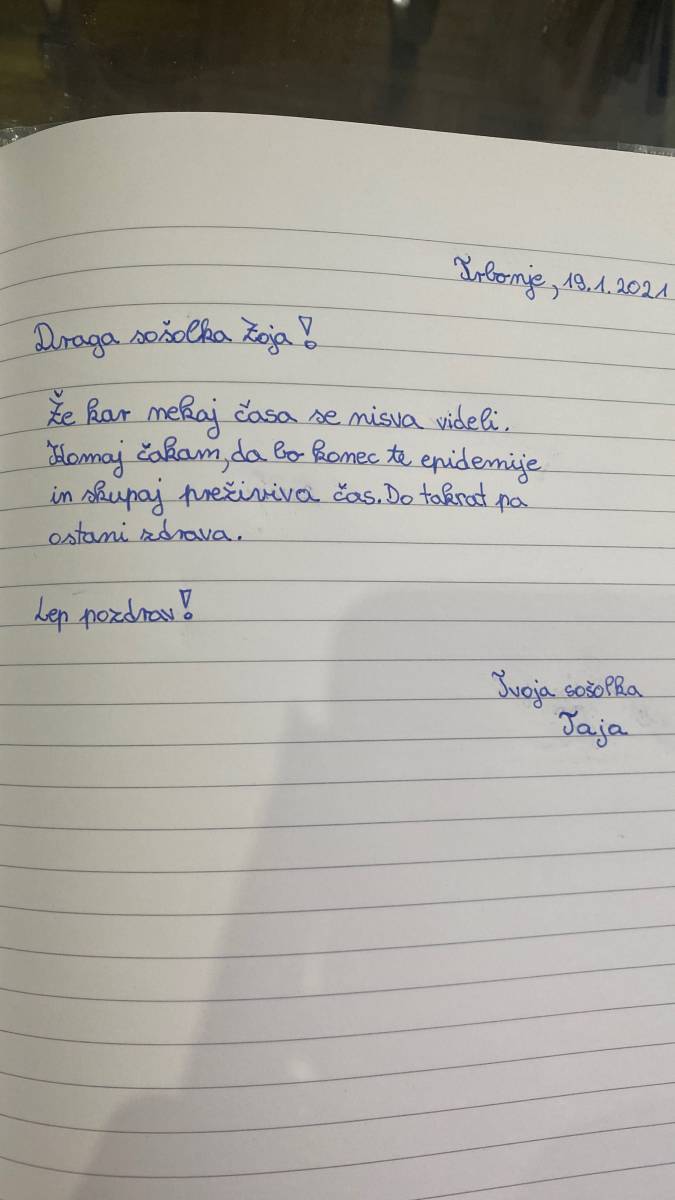 Trbonje, 19.1.2021
Draga sošolka Zoja!
Že kar nekaj časa se nisva videli.
Komaj čakam, da bo konec te epidemije
in skupaj preživiva čas. Do takrat pa
ostani zdrava.
Lep pozdrav!
Tvoja sošolka
Taja